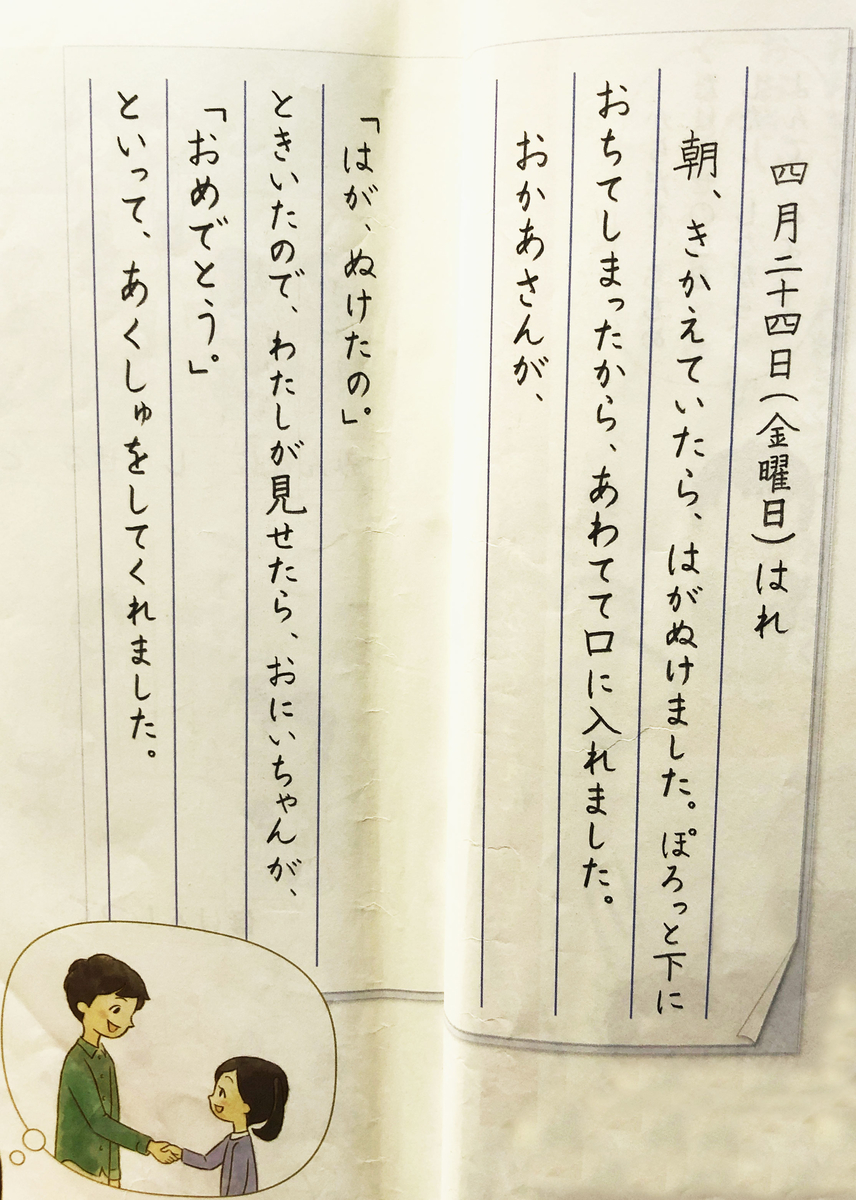 四月二十四日(金曜日)はれ
朝、きかえていたら、はがぬけました。ぽろっと下に
おちてしまったから、あわてて口に入れました。
おかあさんが、
「はが、ぬけたの。」
ときいたので、わたしが見せたら、おにいちゃんが、
「おめでとう。」
といって、あくしゅをしてくれました。